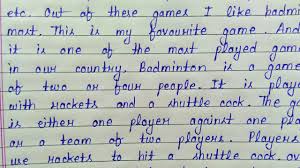 etc. Out of these games I like badmi
most. This is my favourite game. And
it is one of the most played game
in our country. Badminton is a game
of two or four people. It is playe
with rackets and a shuttle cock. The ga
is either one player against one pla
or a team of two players. Players
use rackets to hit a shuttle cock.